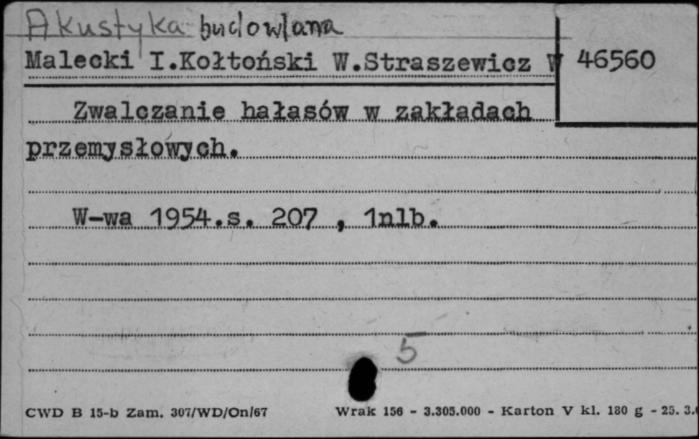 Akustyka budowlana
Malecki I.Kołtoński W.Straszewicz W
46560
Zwalczanie hałasów w zakładach
przemysłowych.
W-wa 1954.s. 207 , 1nlb.
5
CWD B 15-b Zam. 307/WD/On/67 Wrak 156 - 3.305.000 - Karton V kl. 180 g - 25. 3.